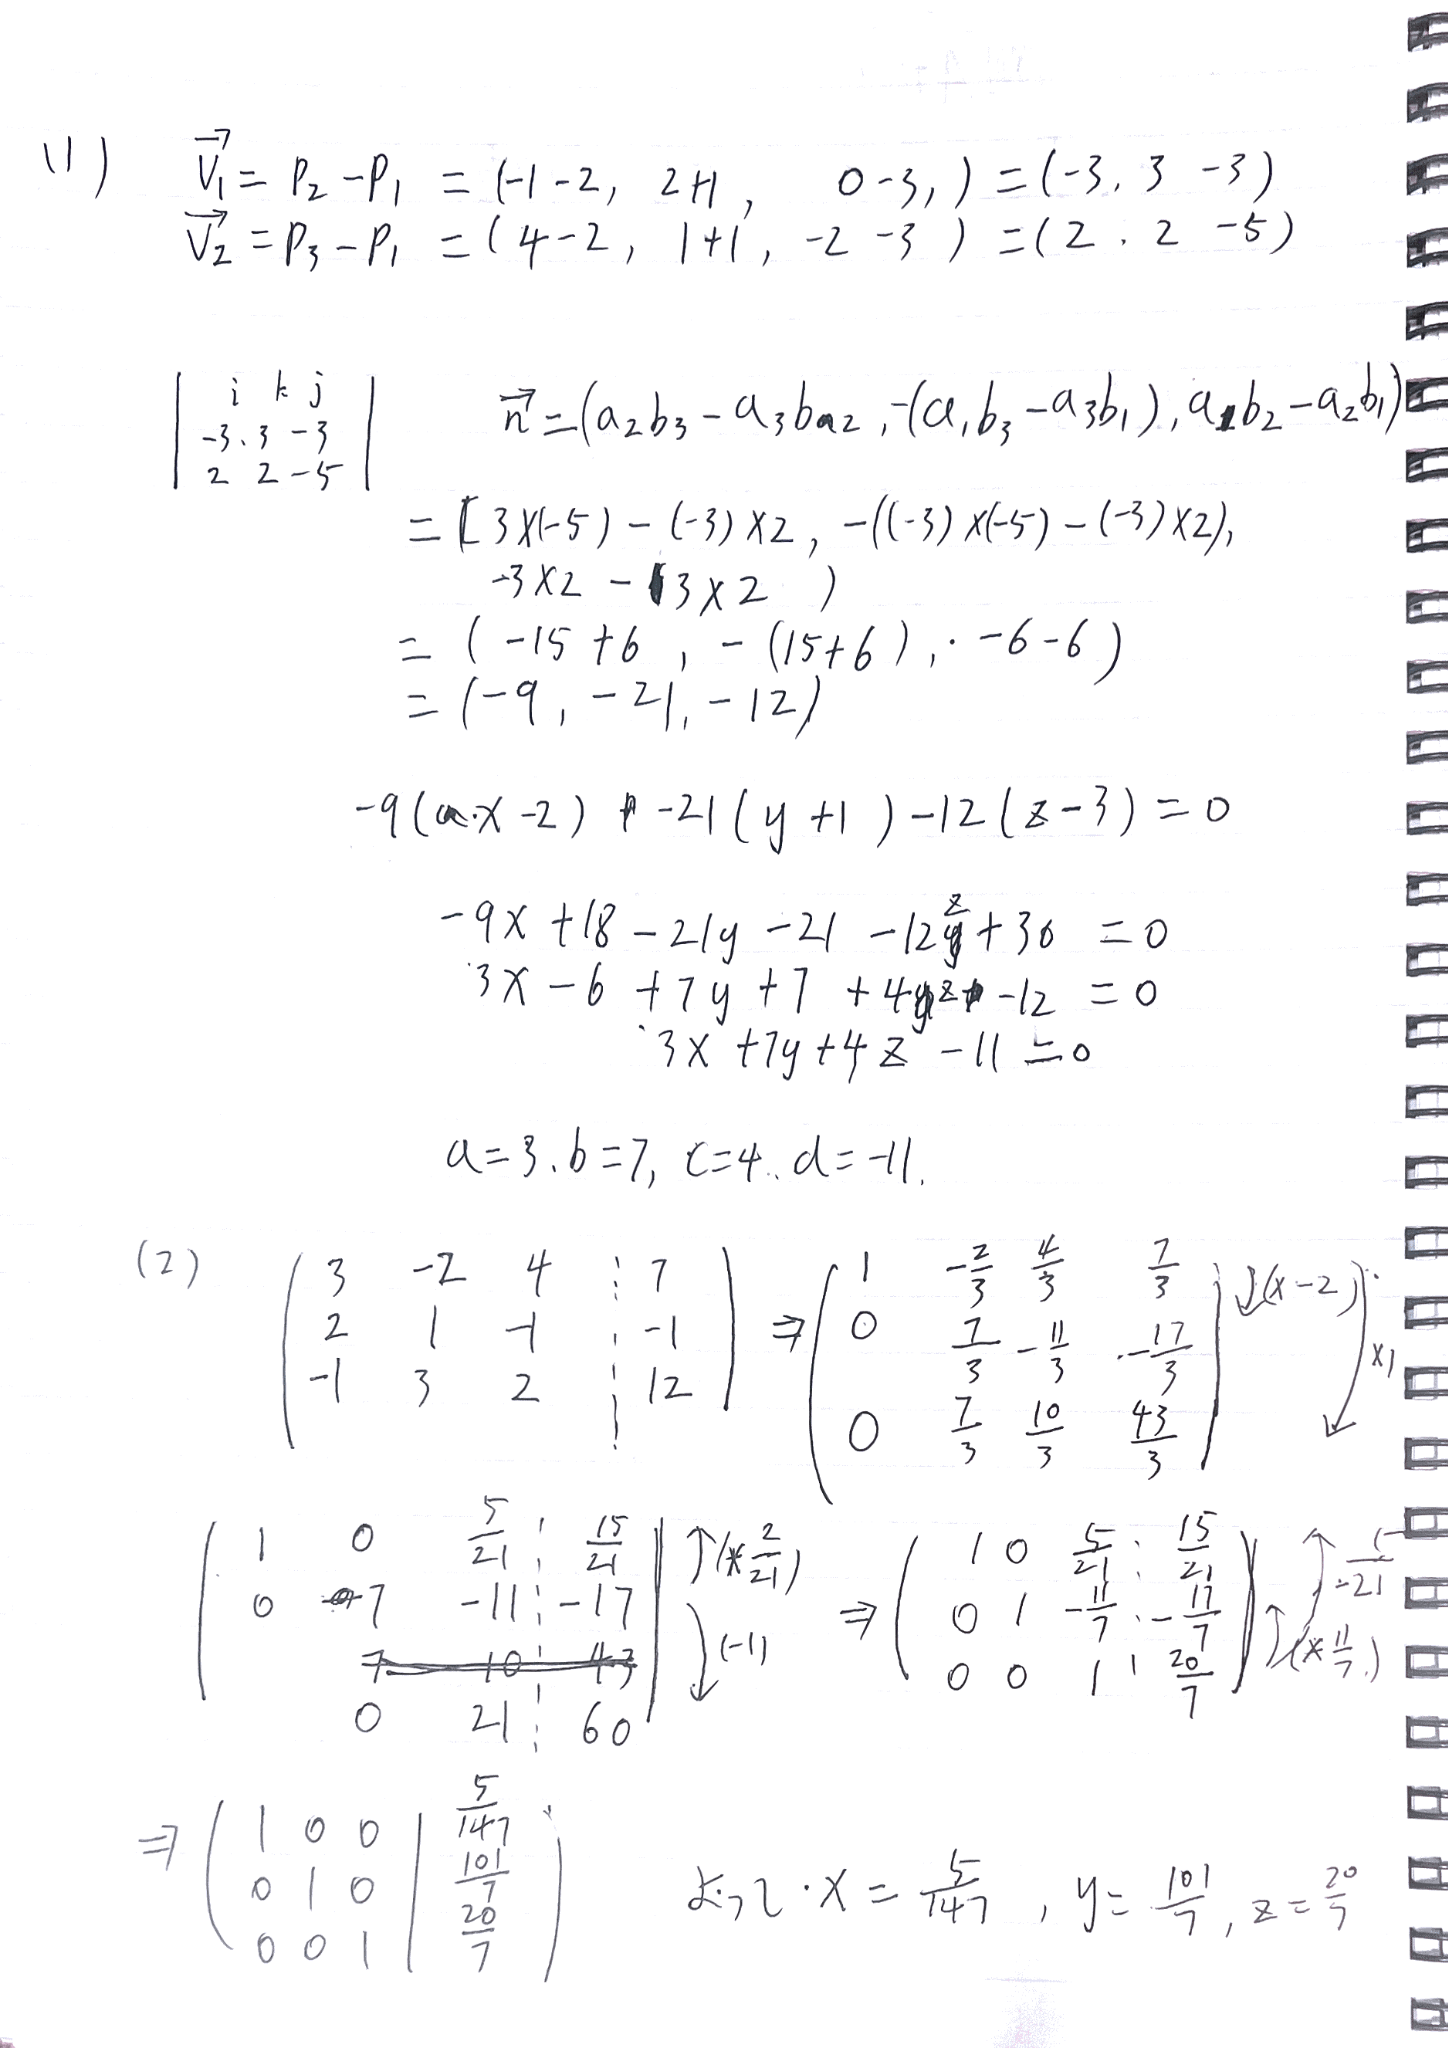 (1) V₁ = P₂ - P₁ = (-1-2, 2+1, 0-3,) = (-3, 3 -3)
V₂ = P₃ - P₁ = (4-2, 1+1, -2-3) = (2, 2 -5)
| i k j |
| -3, 3 -3 |
| 2 2 -5 |
n = (a₂b₃ - a₃b₂, -(a₁b₃ - a₃b₁), a₁b₂ - a₂b₁)
= [3×(-5) - (-3)×2, -((-3)×(-5) - (-3)×2),
-3×2 - 3×2)
= (-15+6, -(15+6), -6-6)
= (-9, -21, -12)
-9(x-2) -21(y+1) -12(z-3) = 0
-9x +18 -21y -21 -12z +36 = 0
3x -6 +7y +7 +4z -12 = 0
3x +7y +4z -11 = 0
a=3, b=7, c=4, d=-11.
(2) ( 3 -2 4 ¦ 7 ) ⇒ ( 1 -2/3 4/3 7/3 ) ↓(×-2)
( 2 1 -1 ¦ -1 ) ( 0 7/3 -11/3 -17/3 ) ×1
( -1 3 2 ¦ 12 ) ( 0 7/3 10/3 43/3 )
( 1 0 5/21 ¦ 15/21 ) ↑(×2/21) ⇒ ( 1 0 5/21 ¦ 15/21 )
( 0 7 -11 ¦ -17 ) ↓(-1) ( 0 1 -11/7 ¦ -17/7 ) ↑(×11/7)
7 10 43 ( 0 0 1 ¦ 20/7 )
0 21 ¦ 60
⇒ ( 1 0 0 | 5/147 )
( 0 1 0 | 101/7 )
( 0 0 1 | 20/7 )
よって x = 5/147, y = 101/7, z = 20/7